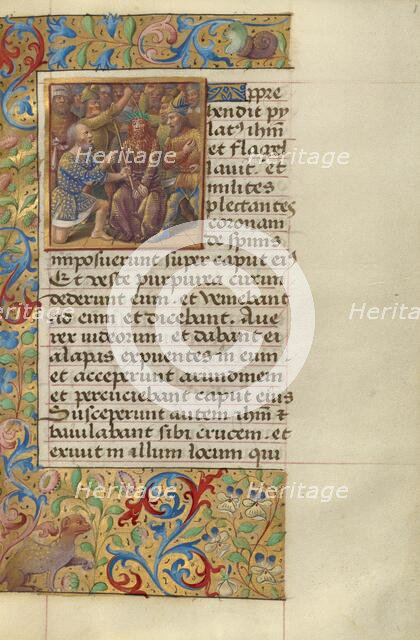 Appre
hendit py
latꝰ ihm
et flagel
lauit. et
milites
plectantes
coronam
de spinis
imposuerunt super caput eiꝰ
Et veste purpurea circum
dederunt eum. et veniebant
ad eum et dicebant. Aue
rex iudeorum. et dabant ei
alapas expuentes in eum.
et acceperunt arundinem
et percuciebant caput eius
Susceperunt autem ihm et
baiulabant sibi crucem. et
exiuit in illum locum qui
Heritage Heritage Heritage
Heritage Heritage Heritage
Heritage Heritage Heritage